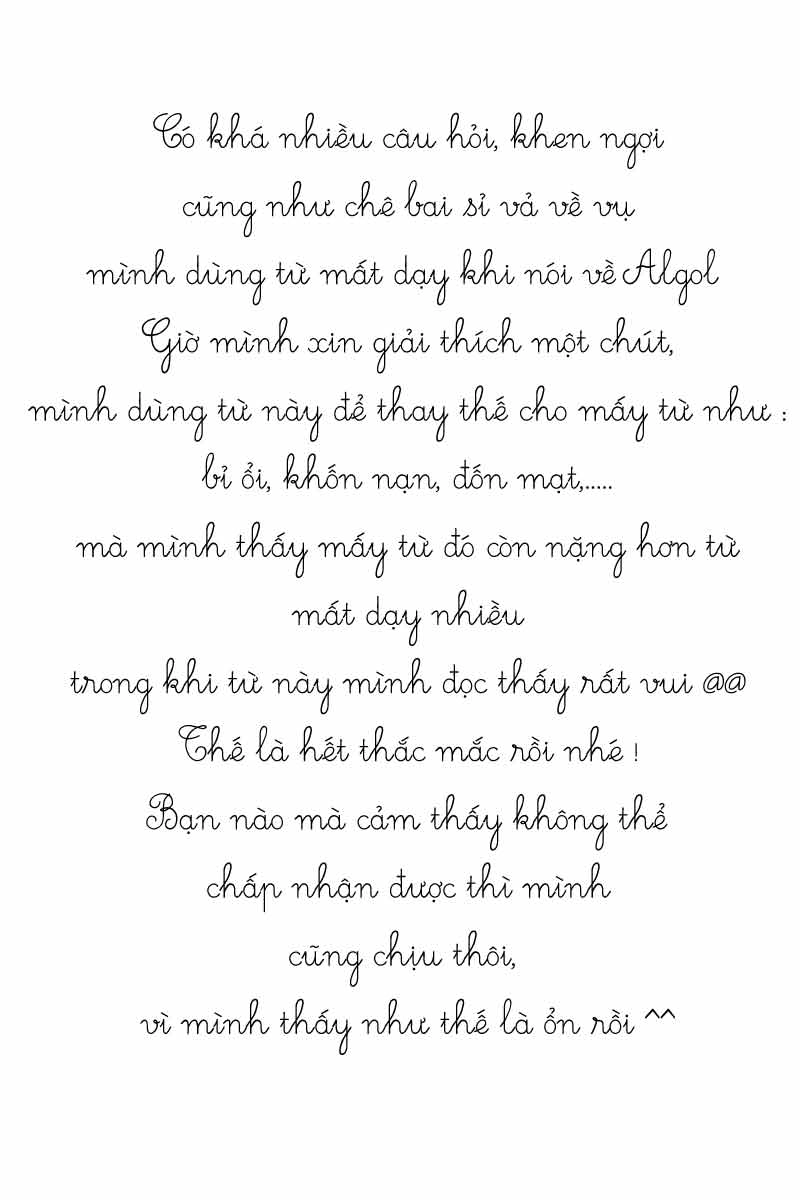 Có khá nhiều câu hỏi, khen ngợi
cũng như chê bai sỉ vả về vụ
mình dùng từ mất dạy khi nói về Algol
Giờ mình xin giải thích một chút,
mình dùng từ này để thay thế cho mấy từ như :
bỉ ổi, khốn nạn, đốn mạt,.....
mà mình thấy mấy từ đó còn nặng hơn từ
mất dạy nhiều
trong khi từ này mình đọc thấy rất vui @@
Thế là hết thắc mắc rồi nhé !
Bạn nào mà cảm thấy không thể
chấp nhận được thì mình
cũng chịu thôi,
vì mình thấy như thế là ổn rồi ^^